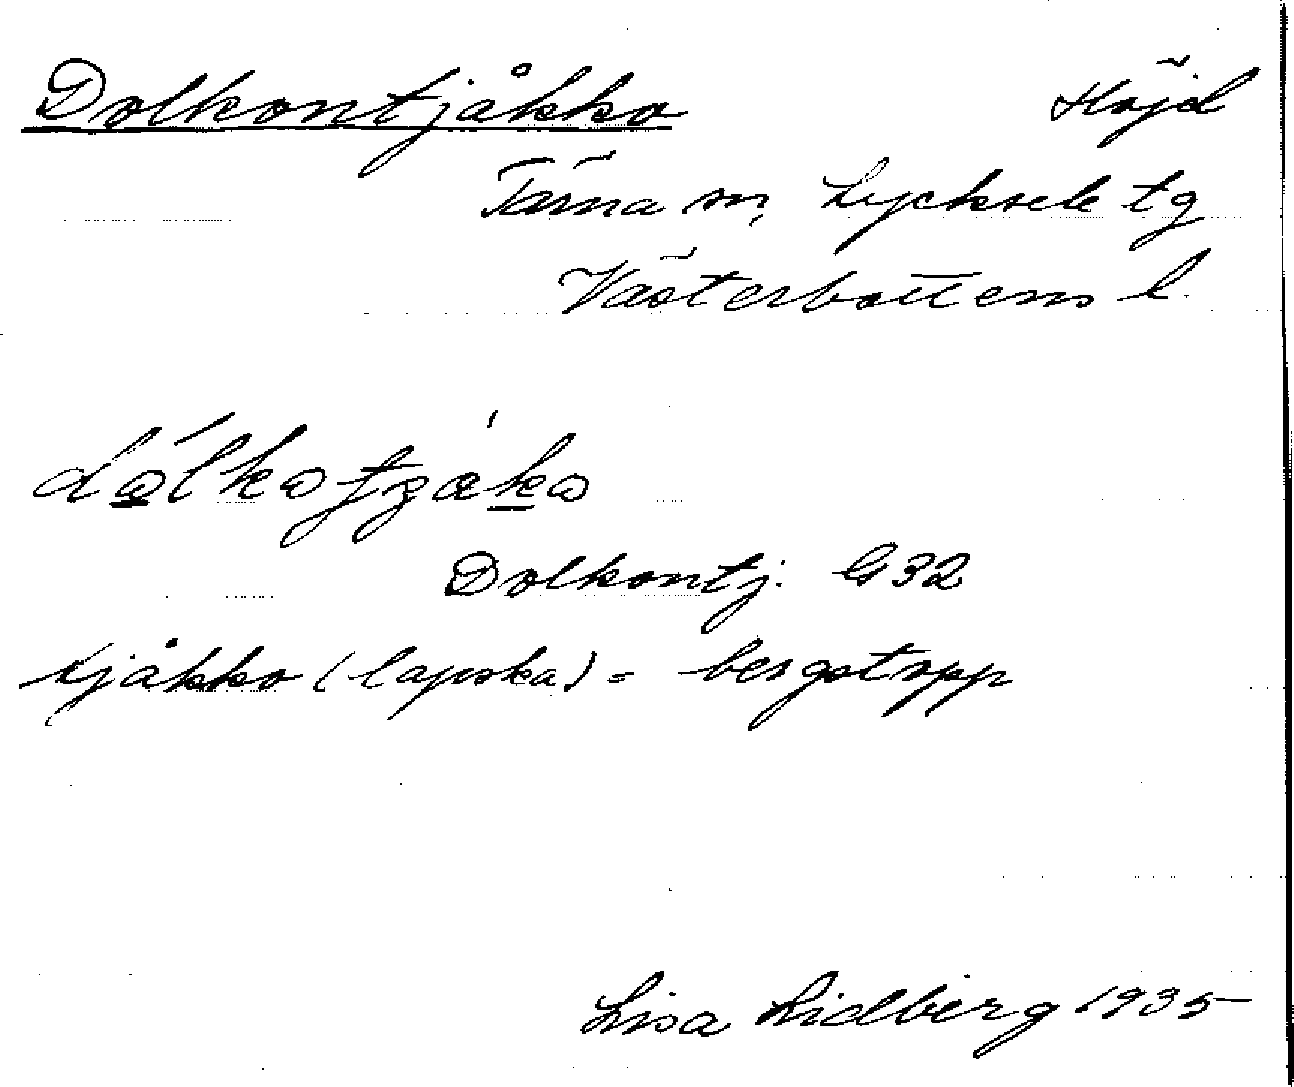 Dolkontjåkko Höjd
Tärna sn, Lycksele tg
Västerbottens l.
Dolkontj. G32
tjåkko (lapska) = bergstopp
Lisa Lidberg 1935